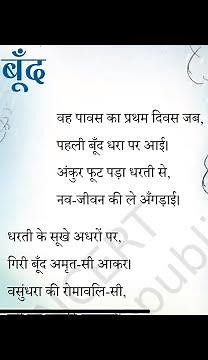 बूँद
वह पावस का प्रथम दिवस जब,
पहली बूँद धरा पर आई।
अंकुर फूट पड़ा धरती से,
नव-जीवन की ले अँगड़ाई।
धरती के सूखे अधरों पर,
गिरी बूँद अमृत-सी आकर।
वसुंधरा की रोमावलि-सी,